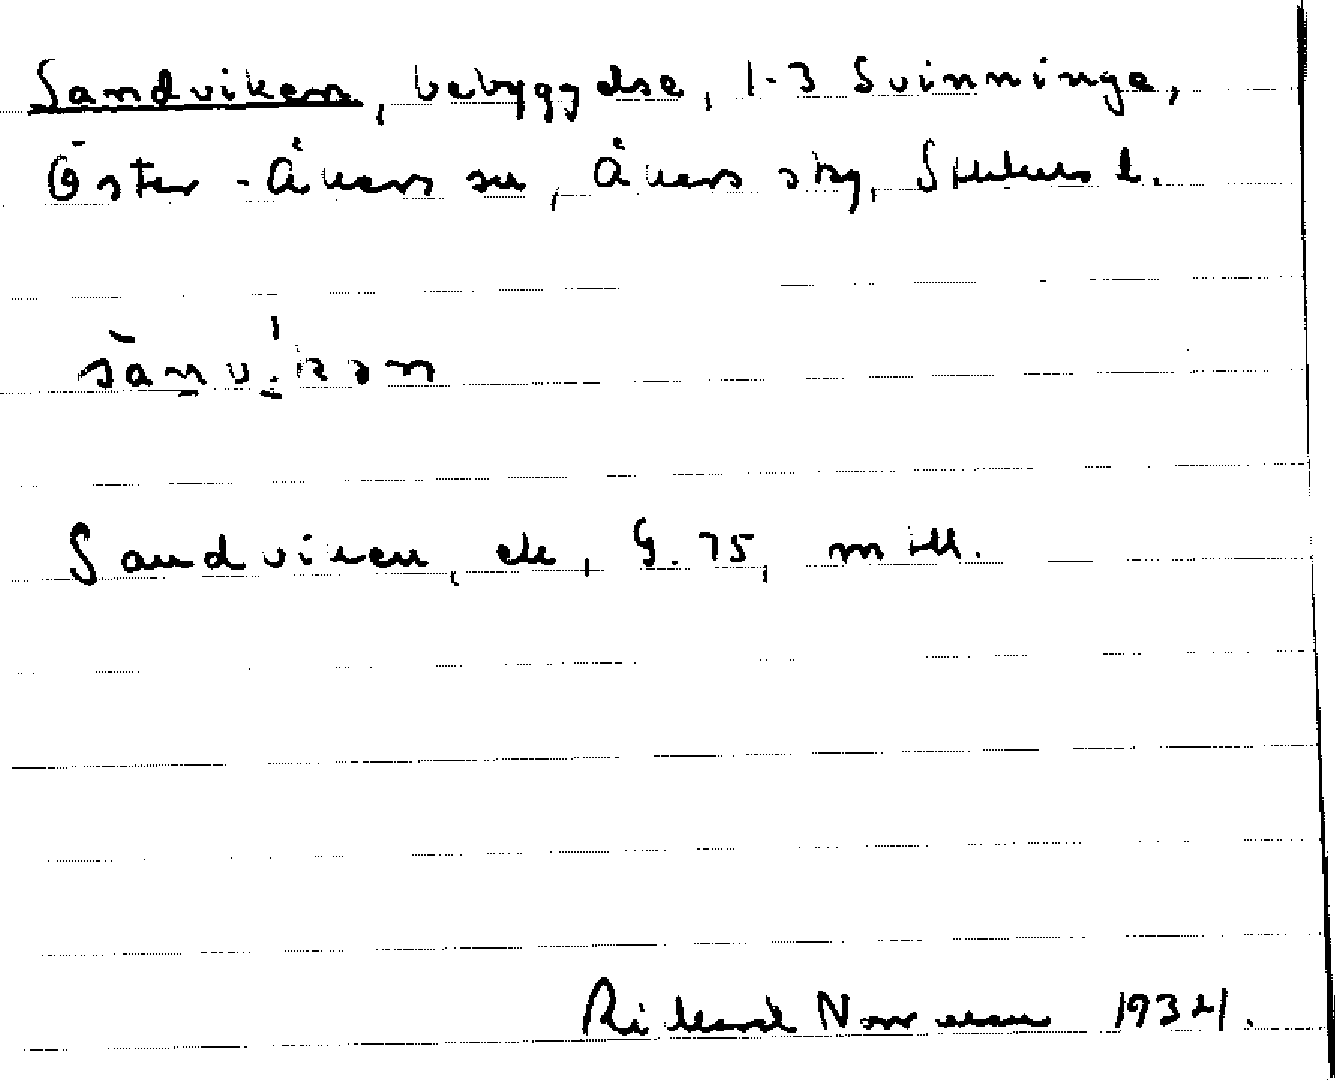 Sandviken, bebyggelse, 1-3 Svinninge,
Öster-Åkers sn, Åkers skg, Sthlms l.
Sandviken, ek, G. 75, mtll.
Rikard Norrman 1934.